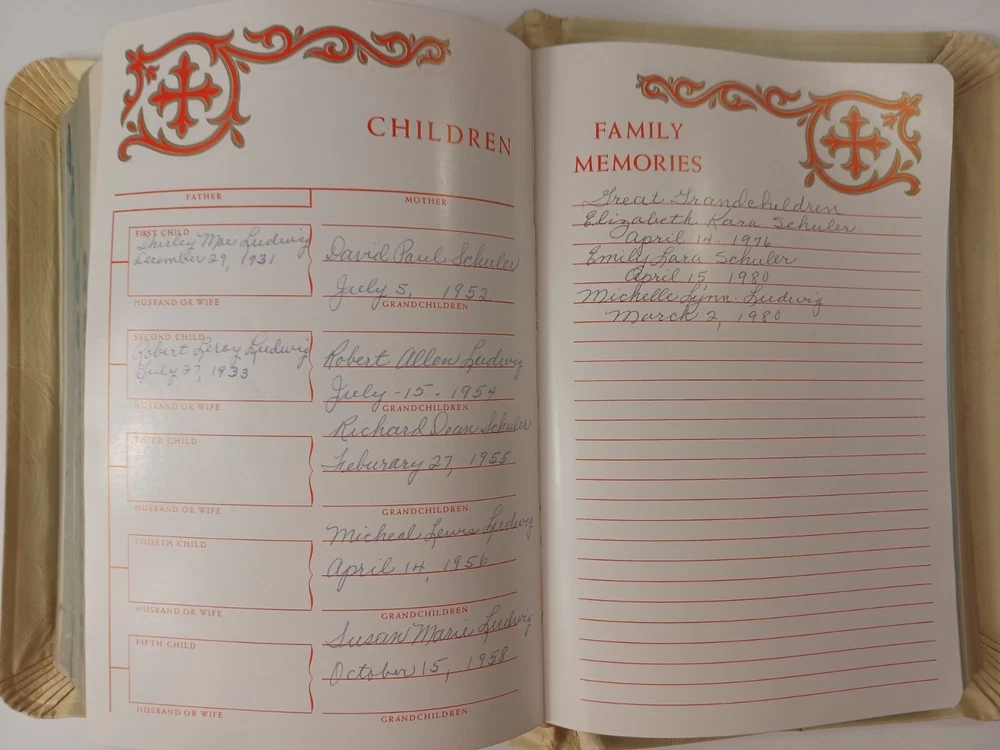 CHILDREN
FATHER
MOTHER
FIRST CHILD
Shirley Mae Ludwig
December 29, 1931
HUSBAND OR WIFE
David Paul Schuler
July 5, 1952.
GRANDCHILDREN
SECOND CHILD
Robert Leroy Ludwig
July 27, 1933
HUSBAND OR WIFE
Robert Allen Ludwig
July - 15 - 1954
GRANDCHILDREN
THIRD CHILD
HUSBAND OR WIFE
Richard Dean Schuler
Feburary 27, 1955
GRANDCHILDREN
FOURTH CHILD
HUSBAND OR WIFE
Micheal Lewis Ludwig
April 14, 1956
GRANDCHILDREN
FIFTH CHILD
HUSBAND OR WIFE
Susan Marie Ludwig
October 15, 1958
GRANDCHILDREN
FAMILY
MEMORIES
Great Grandchildren
Elizabeth Kara Schuler
April 14. 1976
Emily Lara Schuler
April 15, 1980
Michelle Lynn Ludwig
March 2, 1980